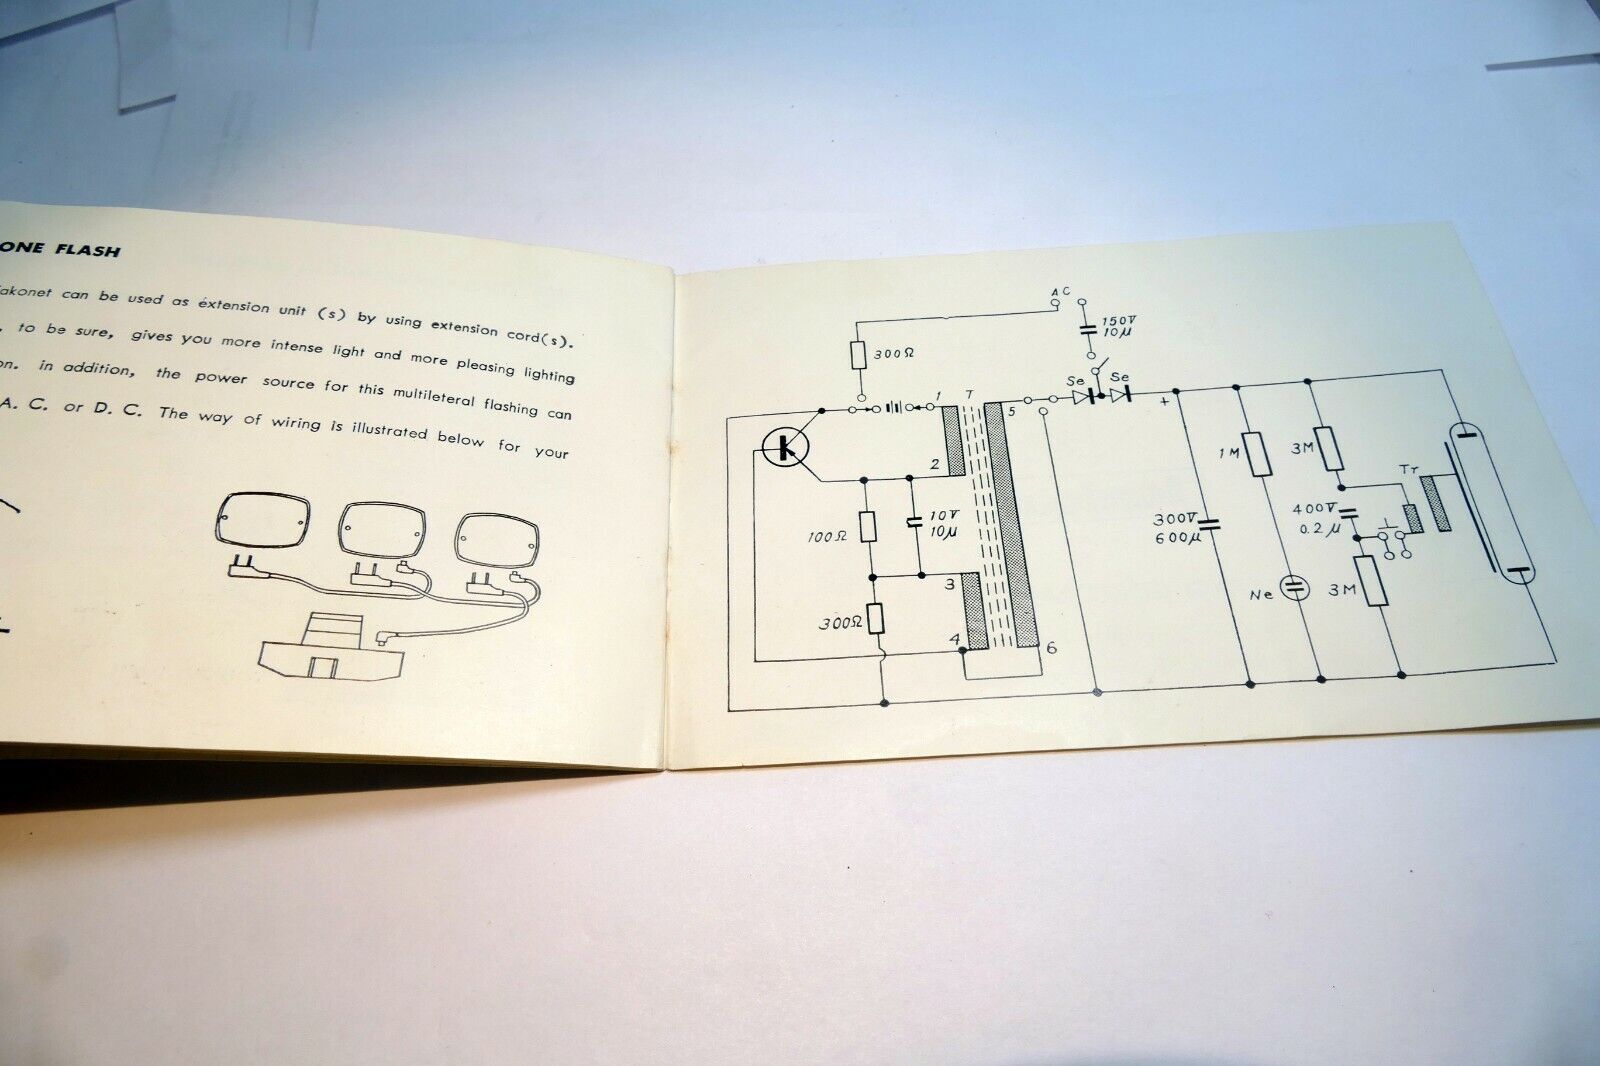 ONE FLASH
akonet can be used as extension unit (s) by using extension cord(s).
, to be sure, gives you more intense light and more pleasing lighting
on. in addition, the power source for this multileteral flashing can
A. C. or D. C. The way of wiring is illustrated below for your
AC
150V
10μ
300Ω
Se
Se
1
T
5
+
2
1M
3M
Tr
10V
10μ
100Ω
400V
0.2μ
300V
600μ
3
Ne
3M
300Ω
4
6